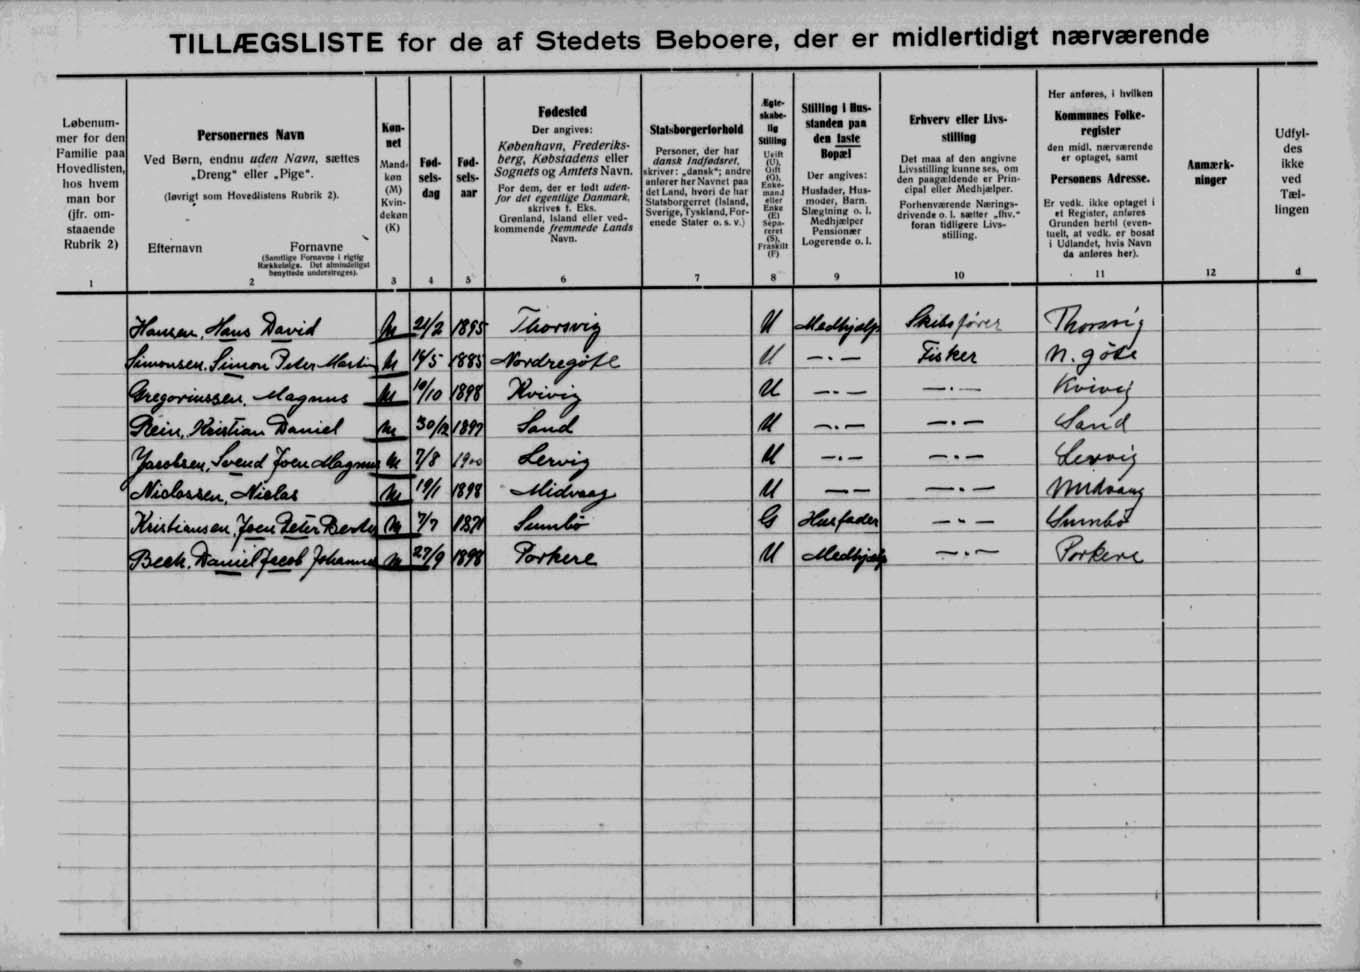 TILLÆGSLISTE for de af Stedets Beboere, der er midlertidigt nærværende
Løbenum-
mer for den
Familie paa
Hovedlisten,
hos hvem
man bor
(jfr. om-
staaende
Rubrik 2)
1
Personernes Navn
Ved Børn, endnu uden Navn, sættes
„Dreng“ eller „Pige“.
(Iøvrigt som Hovedlistens Rubrik 2).
Efternavn
Fornavne
(Samtlige Fornavne i rigtig
Rækkefølge. Det almindeligst
benyttede understreges).
2
Køn-
net
Mand-
køn
(M)
Kvin-
dekøn
(K)
3
Fød-
sels-
dag
4
Fød-
sels-
aar
5
Fødested
Der angives:
København, Frederiks-
berg, Købstadens eller
Sognets og Amtets Navn.
For dem, der er født uden-
for det egentlige Danmark,
skrives f. Eks.
Grønland, Island eller ved-
kommende fremmede Lands
Navn.
6
Statsborgerforhold
Personer, der har
dansk Indfødsret,
skriver: „dansk“; andre
anfører her Navnet paa
det Land, hvori de har
Statsborgerret (Island,
Sverige, Tyskland, For-
enede Stater o. s. v.)
7
Ægte-
skabe-
lig
Stilling
Ugift
(U),
Gift
(G),
Enke-
mand
eller
Enke
(E)
Sepa-
reret
(S),
Fraskilt
(F)
8
Stilling i Hus-
standen paa
den faste
Bopæl
Der angives:
Husfader, Hus-
moder, Barn.
Slægtning o. l.
Medhjælper
Pensionær
Logerende o. l.
9
Erhverv eller Livs-
stilling
Det maa af den angivne
Livsstilling kunne ses, om
den paagældende er Prin-
cipal eller Medhjælper.
Forhenværende Nærings-
drivende o. l. sætter „fhv.“
foran tidligere Livs-
stilling.
10
Her anføres, i hvilken
Kommunes Folke-
register
den midl. nærværende
er optaget, samt
Personens Adresse.
Er vedk. ikke optaget i
et Register, anføres
Grunden hertil (even-
tuelt, at vedk. er bosat
i Udlandet, hvis Navn
da anføres her).
11
Anmærk-
ninger
12
Udfyl-
des
ikke
ved
Tæl-
lingen
d
Hansen, Hans David M 21/2 1895 Thorsvig U Medhjælp Skibsfører Thorsvig
Simonsen, Simon Peter Martin M 14/5 1885 Nordregöte U -.- Fisker N. göte
Gregoriussen, Magnus M 10/10 1898 Kvivig U -.- -.- Kvivig
Rein, Kristian Daniel M 30/12 1897 Sand U -.- -.- Sand
Jacobsen, Svend Joen Magnus M 7/8 1900 Lervig U -.- -.- Lervig
Niclassen, Niclas M 19/1 1898 Midvaag U -.- -.- Midvaag
Kristiansen, Joen Peter M 7/7 1871 Sumbö G Husfader -.- Sumbö
Beck, Daniel Jacob Johannes M 27/9 1898 Porkere U Medhjælp -.- Porkere